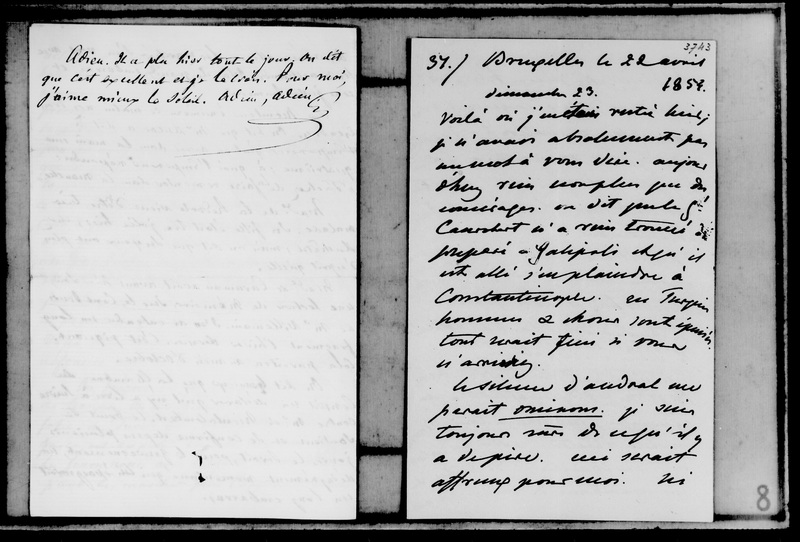 Adieu. Il a plu hier tout le jour. On dit
que c'est excellent et je le crois. Pour moi,
j'aime mieux le Soleil. Adieu, adieu
3743
37./ Bruxelles le 22 avril
1854.
dimanche 23.
Voilà où j'en étais restée hier,
je n'avais absolument pas
un mot à vous dire. aujour
d'huy rien non plus que des
commérages. on dit que le Gal
Canrobert n'a rien trouvé de
preparé à Galipoli et qu'il
est allé s'en plaindre à
Constantinople. en Turquie
hommes & choses sont épuisés.
tout serait fini si vous
n'arriviez.
le silence d'andral me
parait ominous. je suis
toujours sûre de ce qu'il y
a de pire. ceci serait
affreux pour moi. ni
8